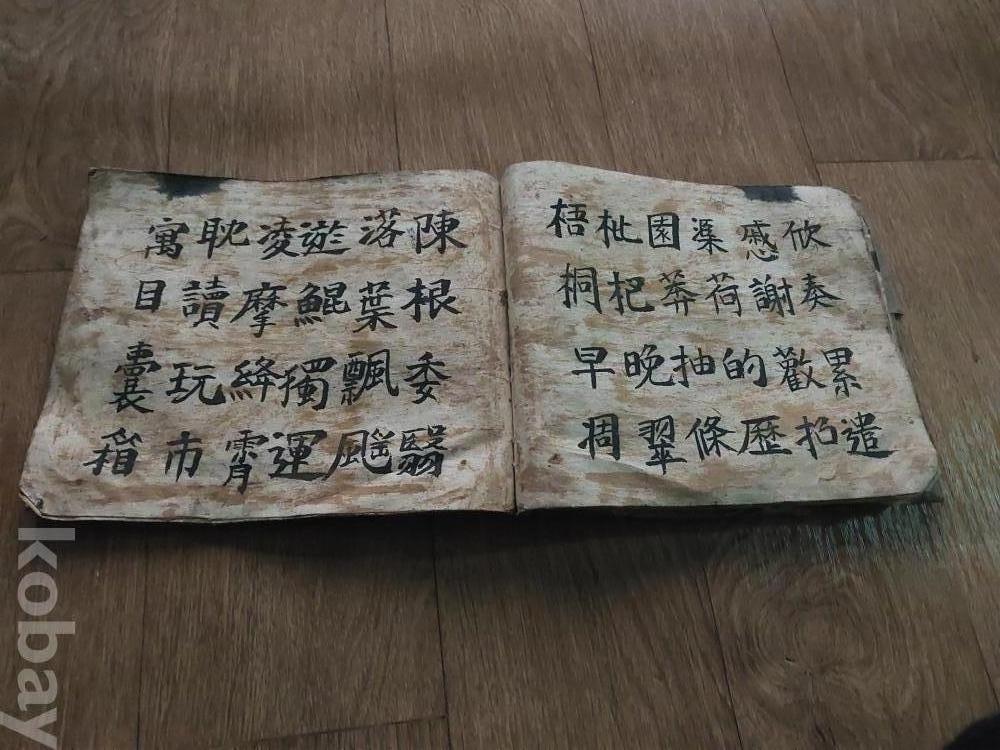 欣奏累遣
慼謝歡招
渠荷的歷
園莽抽條
枇杷晚翠
梧桐早凋
陳根委翳
落葉飄颻
遊鯤獨運
凌摩絳霄
耽讀玩市
寓目囊箱
kobay